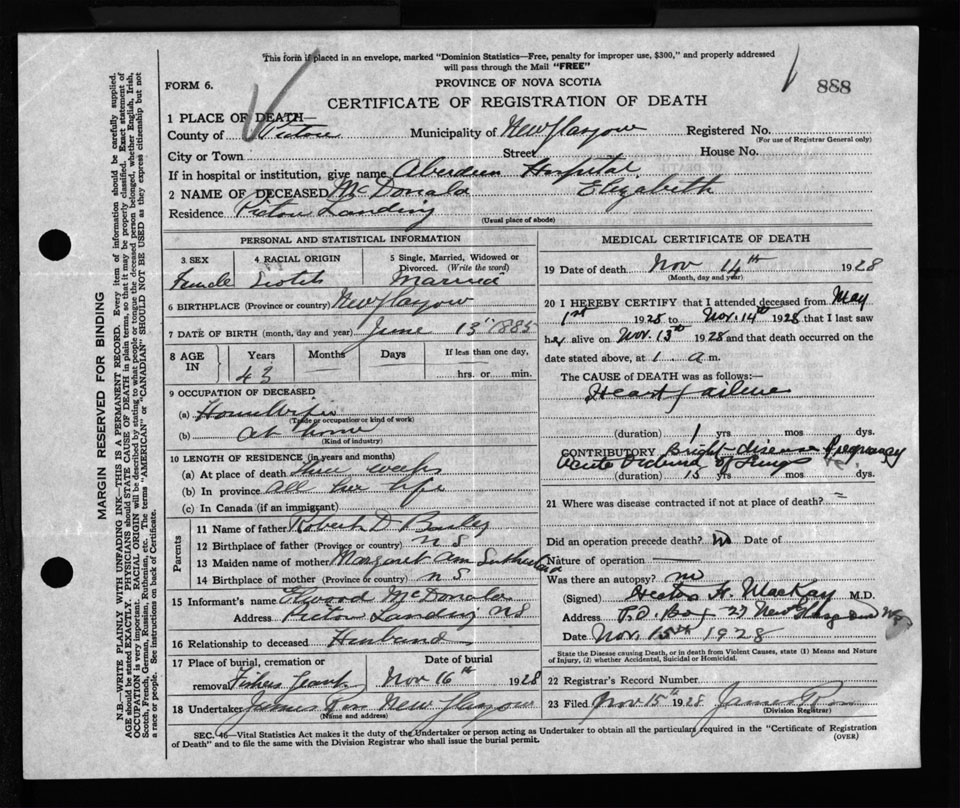 This form if placed in an envelope, marked "Dominion Statistics—Free, penalty for improper use, $300," and properly addressed
will pass through the Mail "FREE"
FORM 6.
PROVINCE OF NOVA SCOTIA
888
CERTIFICATE OF REGISTRATION OF DEATH
1 PLACE OF DEATH—
County of Pictou Municipality of New Glasgow Registered No.
(For use of Registrar General only)
City or Town Street House No.
If in hospital or institution, give name Aberdeen Hospital
2 NAME OF DECEASED McDonald Elizabeth
Residence Pictou Landing
(Usual place of abode)
PERSONAL AND STATISTICAL INFORMATION
3 SEX 4 RACIAL ORIGIN 5 Single, Married, Widowed or
Divorced. (Write the word)
Female Scotch Married
6 BIRTHPLACE (Province or country) New Glasgow
7 DATE OF BIRTH (month, day and year) June 13th 1885
8 AGE IN Years Months Days If less than one day,
43 — — hrs. or min.
9 OCCUPATION OF DECEASED
(a) HouseWife
(Trade or occupation or kind of work)
(b) at home
(Kind of industry)
10 LENGTH OF RESIDENCE (in years and months)
(a) At place of death three weeks
(b) In province all her life
(c) In Canada (if an immigrant)
Parents
11 Name of father Robert D
12 Birthplace of father (Province or country) N S
13 Maiden name of mother Margaret Ann Sutherland
14 Birthplace of mother (Province or country) N S
15 Informant's name Elwood McDonald
Address Pictou Landing NS
16 Relationship to deceased Husband
17 Place of burial, cremation or Date of burial
removal Fishers Grant Nov 16th 1928
18 Undertaker James New Glasgow
(Name and address)
MEDICAL CERTIFICATE OF DEATH
19 Date of death Nov 14th 1928
(Month, day and year)
20 I HEREBY CERTIFY that I attended deceased from May
1st 1928 to Nov. 14th 1928 that I last saw
her alive on Nov. 13th 1928 and that death occurred on the
date stated above, at 1 a m.
The CAUSE OF DEATH was as follows:
Heart failure
(duration) 1 yrs mos dys.
CONTRIBUTORY Brights disease Pregnancy
Acute Oedema of Lungs
(duration) 15 yrs mos dys.
21 Where was disease contracted if not at place of death?
Did an operation precede death? No Date of
Nature of operation
Was there an autopsy? no
(Signed) Hector H. MacKay M.D.
Address P.O. Box 27 New Glasgow NS
Date Nov. 15th 1928
State the Disease causing Death, or in death from Violent Causes, state (1) Means and Nature
of Injury, (2) whether Accidental, Suicidal or Homicidal.
22 Registrar's Record Number
23 Filed Nov 15th 1928 James
(Division Registrar)
SEC. 46—Vital Statistics Act makes it the duty of the Undertaker or person acting as Undertaker to obtain all the particulars required in the "Certificate of Registration
of Death" and to file the same with the Division Registrar who shall issue the burial permit.
(OVER)
MARGIN RESERVED FOR BINDING
N.B.—WRITE PLAINLY WITH UNFADING INK—THIS IS A PERMANENT RECORD. Every item of information should be carefully supplied.
AGE should be stated EXACTLY. PHYSICIANS should STATE CAUSE OF DEATH in plain terms, so that it may be properly classified. Exact statement of
OCCUPATION is very important. RACIAL ORIGIN will be described by stating to what people or tongue the deceased person belonged, whether English, Irish,
Scotch, French, German, Russian, Ruthenian, etc. The terms "AMERICAN" or "CANADIAN" SHOULD NOT BE USED as they express citizenship but not
a race or people. See instructions on back of Certificate.